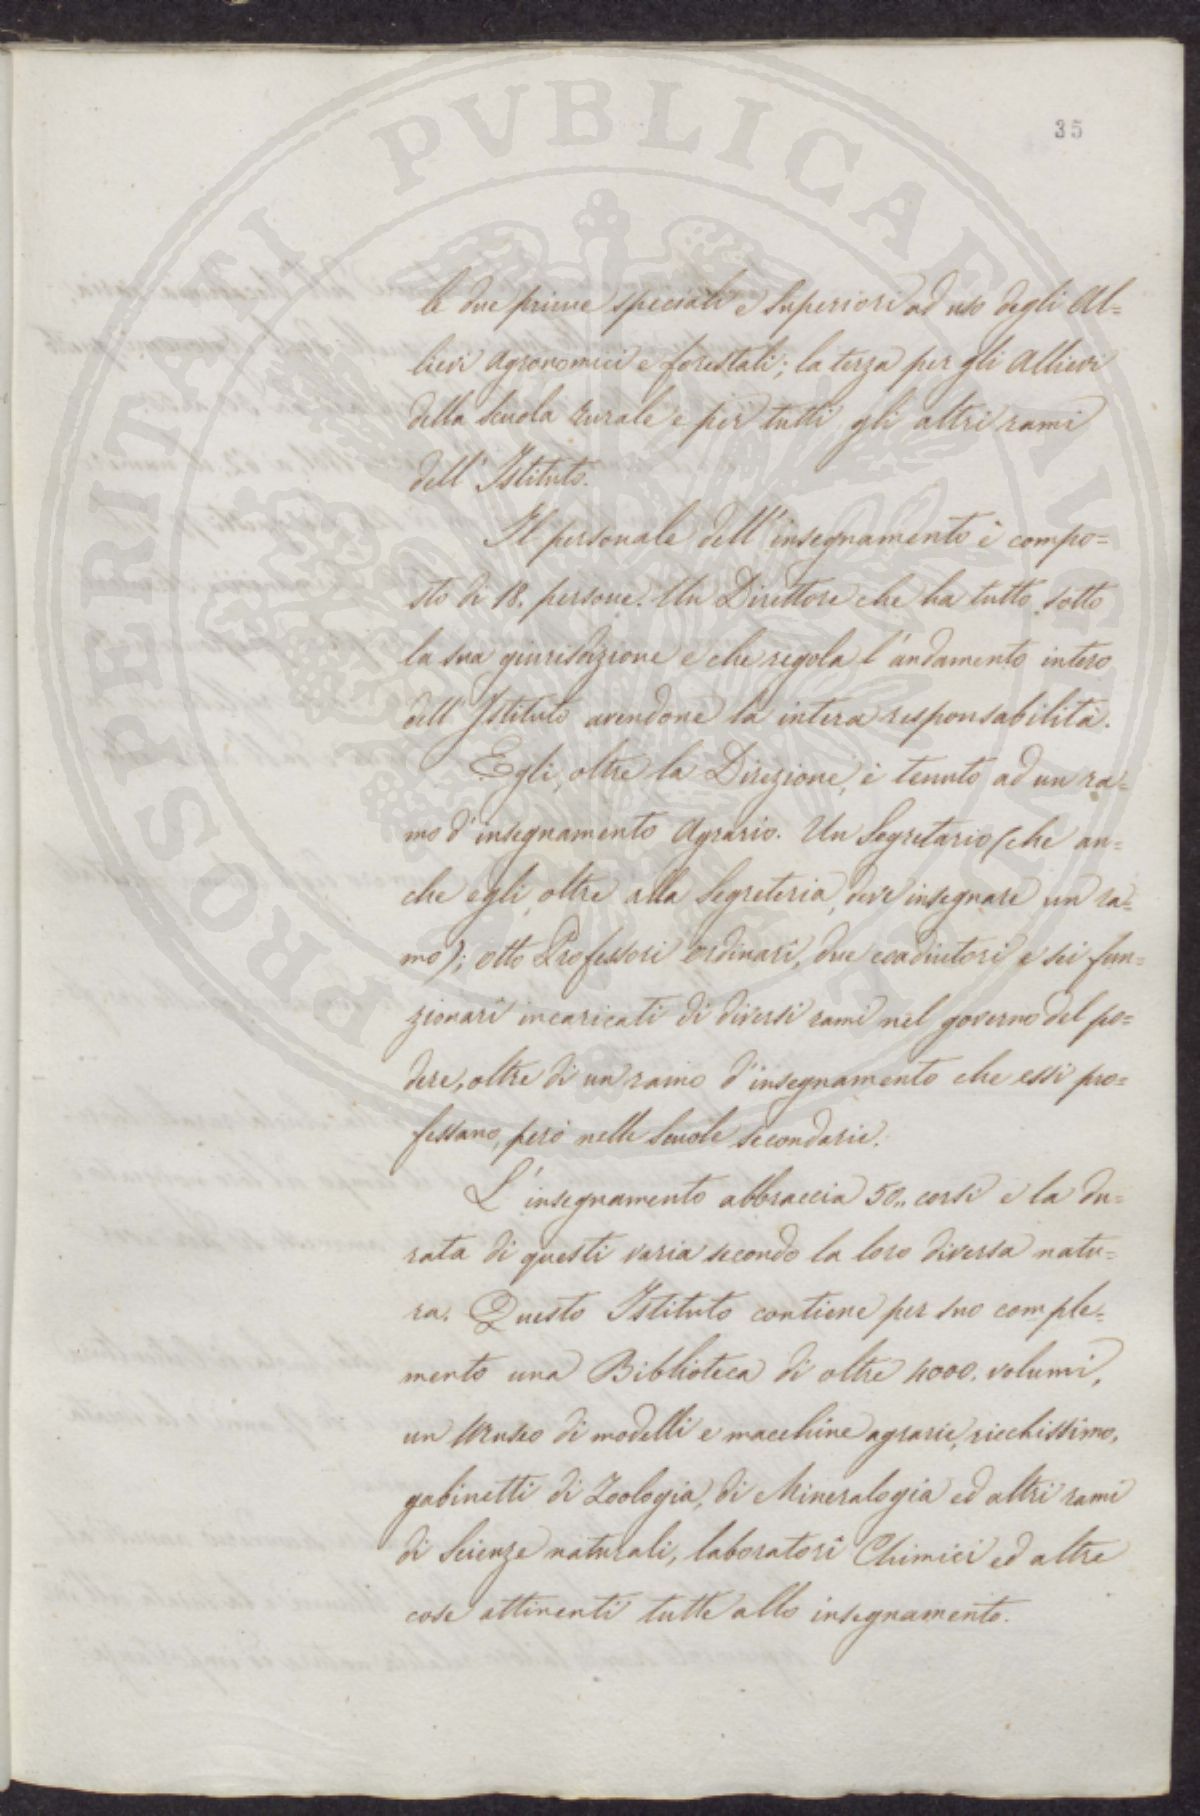 PROSPERITATI PVBLICAE AVGENDAE
35
le due prime speciali e Superiori ad uso degli Al=
lievi Agronomici e forestali; la terza per gli Allievi
della Scuola rurale e per tutti gli altri rami
dell' Istituto.
Il personale dell' insegnamento è compo=
sto di 18. persone. Un Direttore che ha tutto sotto
la sua giurisdizione e che regola l' andamento intero
dell' Istituto avendone la intera responsabilità.
Egli, oltre la Direzione, è tenuto ad un ra=
mo d' insegnamento Agrario. Un Segretario (che an=
che egli, oltre alla Segreteria, deve insegnare un ra=
mo); otto Professori ordinarî, due coadiutori e sei fun=
zionarî incaricati di diversi rami nel governo del po=
dere, oltre di un ramo d' insegnamento che essi pro=
fessano, però nelle Scuole secondarie.
L' insegnamento abbraccia 50,, corsi e la du=
rata di questi varia secondo la loro diversa natu=
ra. Questo Istituto contiene per suo comple=
mento una Biblioteca di oltre 4000. volumi,
un Museo di modelli e macchine agrarie, ricchissimo,
gabinetti di Zoologia, di Mineralogia ed altri rami
di Scienze naturali, laboratorî Chimici ed altre
cose attinenti tutte allo insegnamento.